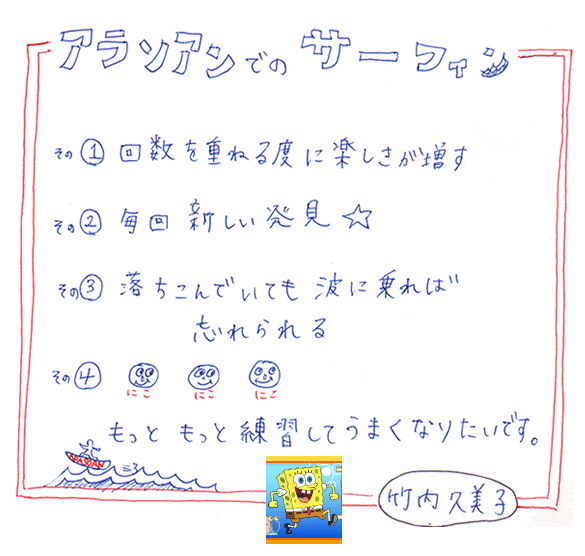 アラソアンでのサーフィン
その① 回数を重ねる度に楽しさが増す
その② 毎回 新しい発見☆
その③ 落ちこんでいても 波に乗れば
忘れられる
その④
にこ にこ にこ
もっと もっと 練習してうまくなりたいです。
竹内久美子